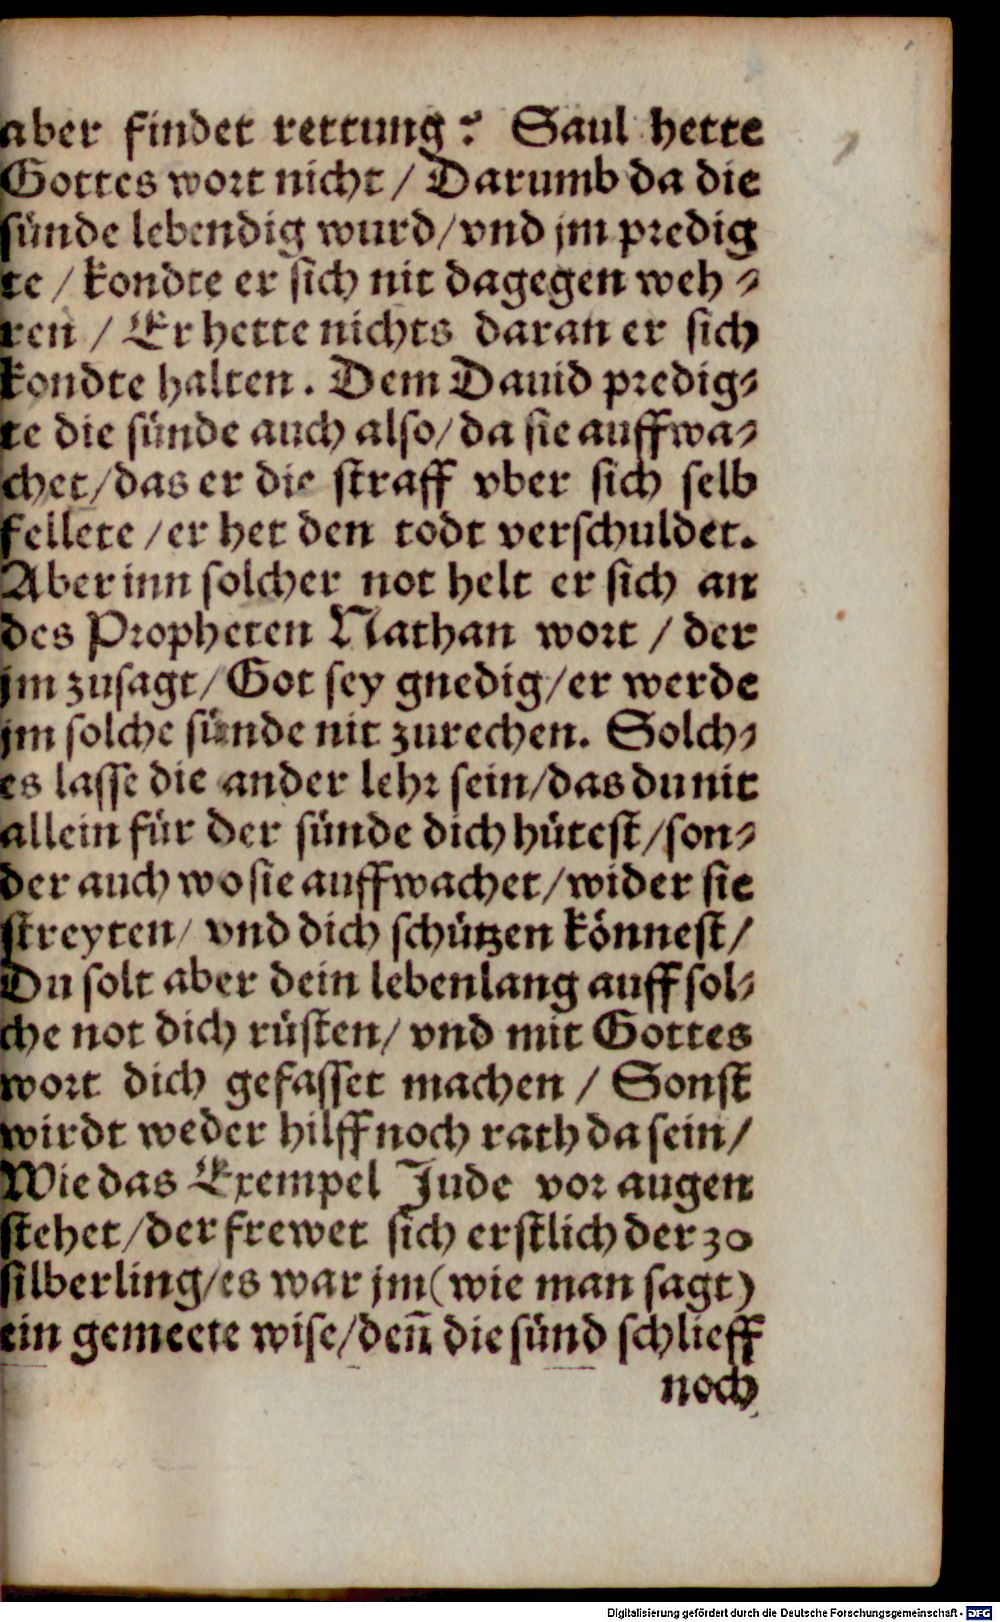 aber findet rettung? Saul hette
Gottes wort nicht / Darumb da die
sünde lebendig wurd/vnd jm predig
te / kondte er sich nit dagegen weh⸗
ren / Er hette nichts daran er sich
kondte halten. Dem Dauid predig⸗
te die sünde auch also/da sie auffwa⸗
chet/das er die straff vber sich selb
fellete /er het den todt verschuldet.
Aber inn solcher not helt er sich an
des Propheten Nathan wort / der
jm zusagt/Got sey gnedig/er werde
jm solche sünde nit zurechen. Solch⸗
es lasse die ander lehr sein/das du nit
allein für der sünde dich hütest/son⸗
der auch wo sie auffwachet/wider sie
streyten/ vnd dich schützen könnest/
Du solt aber dein lebenlang auff sol⸗
che not dich rüsten/ vnd mit Gottes
wort dich gefasset machen / Sonst
wirdt weder hilff noch rath da sein/
Wie das Exempel Jude vor augen
stehet/der frewet sich erstlich der 30
silberling/es war jm(wie man sagt)
ein gemeete wise/deñ die sünd schlieff
noch
Digitalisierung gefördert durch die Deutsche Forschungsgemeinschaft - DFG